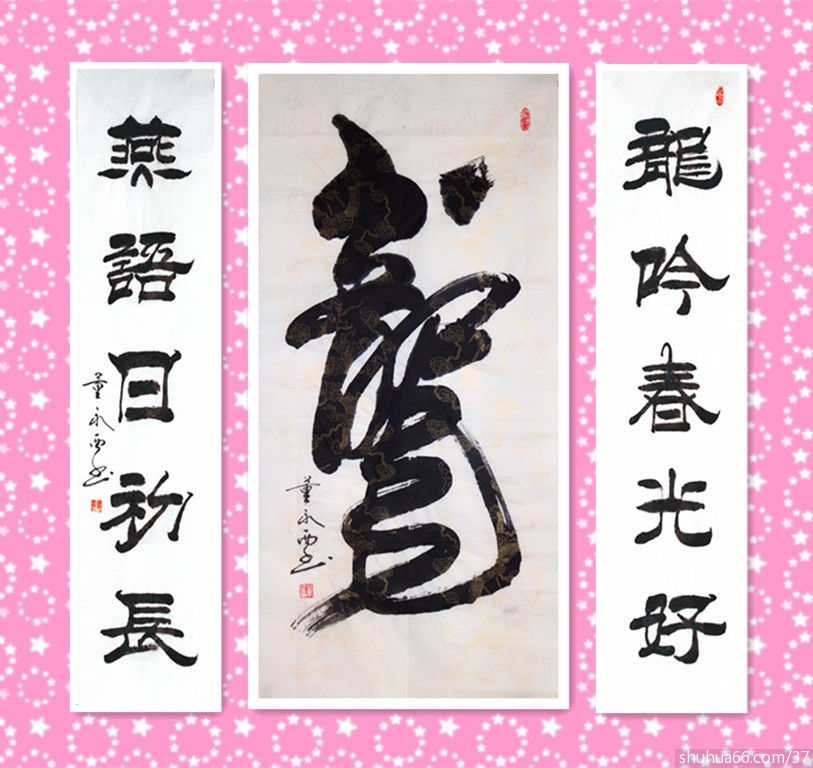 龍吟春光好
龍
董永西书
燕語日初長
董永西书
shuhua66.com/37